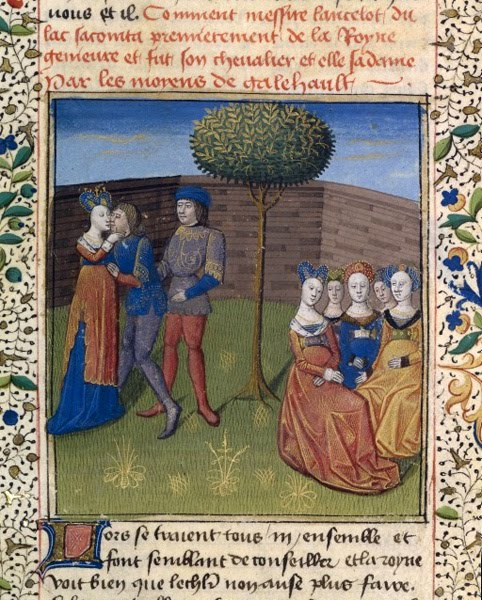 vous et il. Comment messire lancelot du
lac sacointa premierement de la Royne
genieure et fut son chevalier et elle sa dame
Par les moyens de galehault.
Lors se traient tous iij ensemble et
font semblant de conseiller et la royne
voit bien que le chlr non ause plus faire.